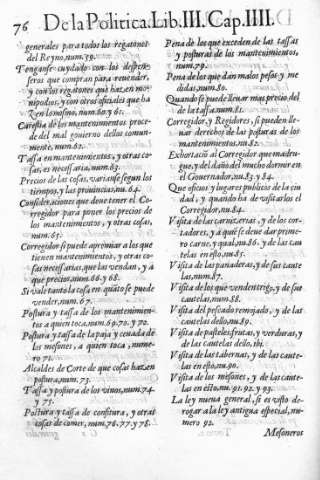 76 De la Politica. Lib. III. Cap. IIII.
generales para todos los regatones
del Reyno, num. 59.
Tengase cuydado con los despen-
seros que compran para reuender,
y con los regatones que hazen mo-
nipodios, y con otros oficiales que ha
zen lo mismo, num. 60. y 61.
Carestia de los mantenimientos proce-
de del mal gouierno dellos comun-
mente, num. 62.
Tassa en mantenimientos, y otras co-
sas, es necessaria, num. 63.
Precios de las cosas, varianse segun los
tiempos, y las prouincias, nu. 64.
Consideraciones que deue tener el Co-
rregidor para poner los precios de
los mantenimientos, y otras cosas,
num. 65.
Corregidor si puede apremiar a los que
tienen mantenimientos, y otras co-
sas necessarias, que los vendan, y a
que precios, num. 66. y 68.
Si vale tanto la cosa en quãto se puede
vender, num. 67.
Postura y tassa de los mantenimien-
tos a quien toca, num. 69. 70. y 72.
Postura y tassa de la paja y ceuada de
los mesones, a quien toca, nume-
ro 71.
Alcaldes de Corte de que cosas hazen
postura, num. 73.
Tassa y postura de los vinos, num. 74.
y 75.
Postura y tassa de confitura, y otras
cosas de comer, num. 76. 77. y 78.
Pena de los que exceden de las tassas
y posturas de los mantenimientos,
num. 79.
Pena de los que dan malos pesos y me
didas, num. 80.
Quando se puede lleuar mas precio del
de la tassa, num. 81.
Corregidor, y Regidores, si pueden lle-
uar derechos de las posturas de los
mantenimientos, num. 82.
Exhortaciõ al Corregidor que madru-
gue, y del daño del mucho dormir en
el Gouernador, nu. 83. y 84.
Que oficios y lugares publicos de la ciu
dad, y quando ha de visitarlos el
Corregidor, nu. 84.
Visita de las carnicerias, y de los cor-
tadores, y a quiẽ se deue dar prime-
ro carne, y qual, nu. 86. y de las cau
telas en esto, nu. 85.
Visita de las panaderas, y de sus caute
las, num. 87.
Visita de los que venden trigo, y de sus
cautelas, num. 88.
Visita del pescado remojado, y de las
cautelas dello, nu. 89.
Visita de pasteles, frutas, y verduras, y
de las cautelas dello, ibi.
Visita de las tabernas, y de las caute-
las en esto, nu. 90.
Visita de los mesones, y de las caute-
las en esto, nu. 91. 92. y 93.
La ley nueua general, si es visto de-
rogar a la ley antigua especial, nu-
mero 92.
Mesoneros